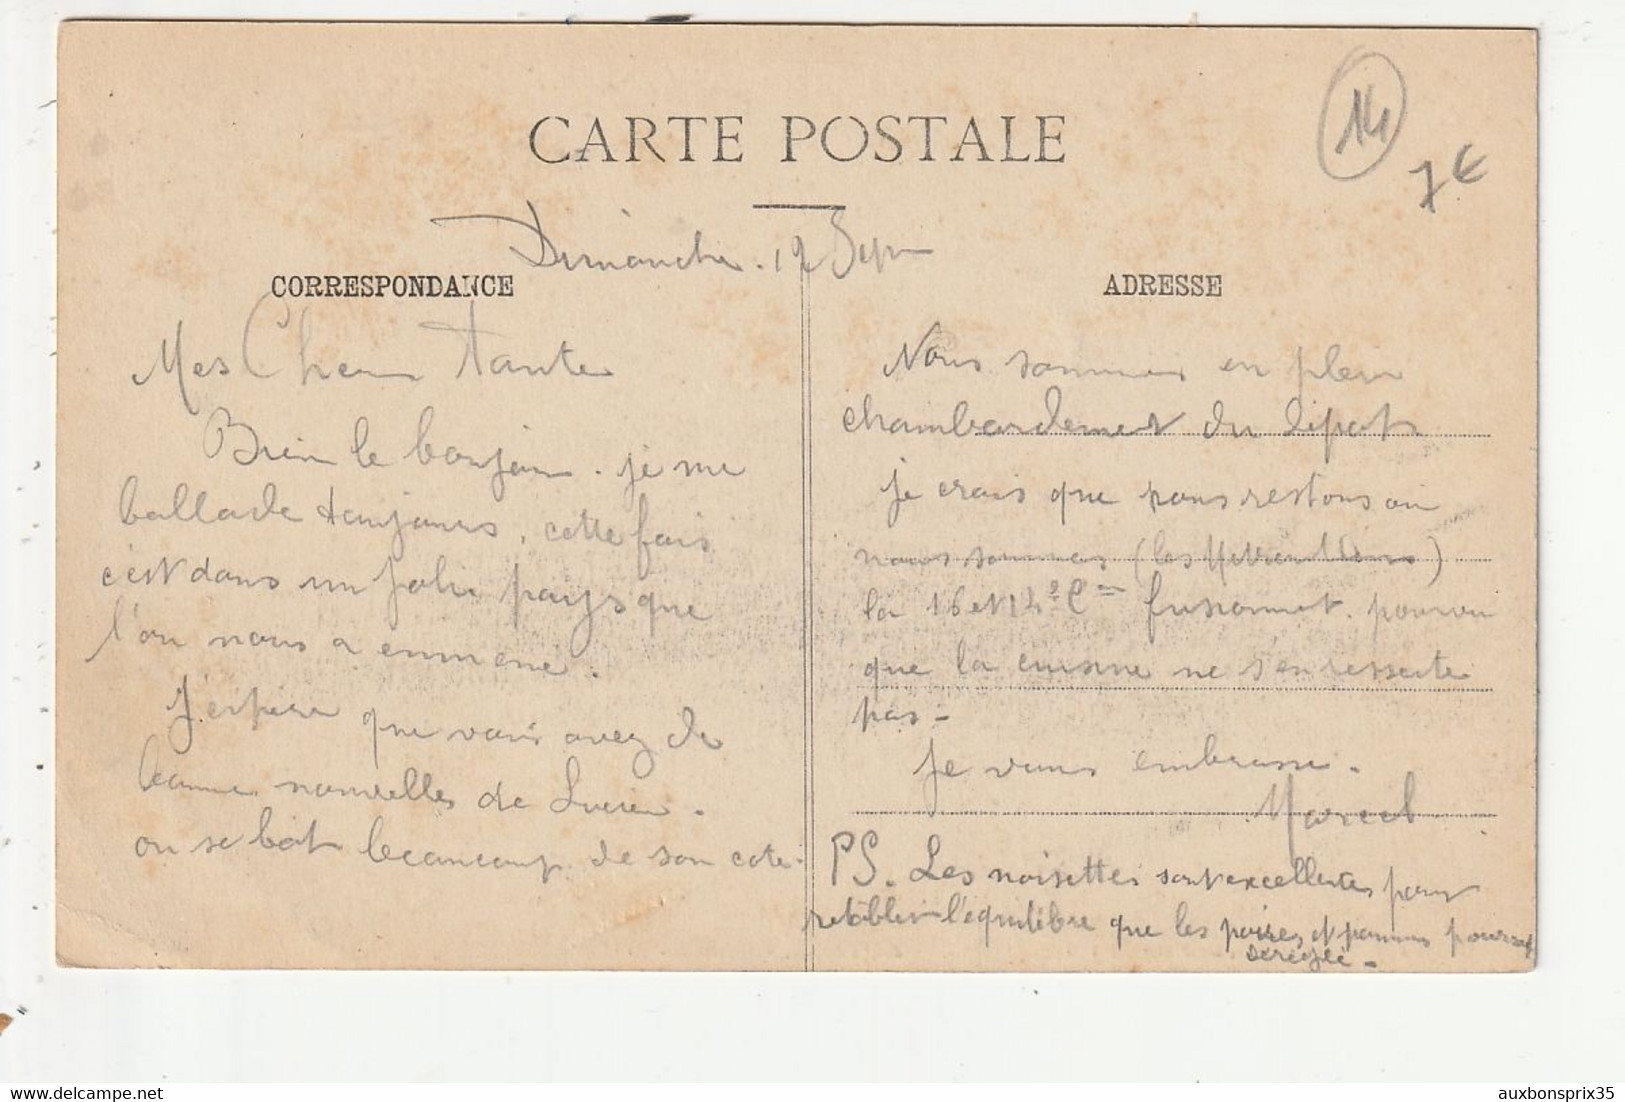 CARTE POSTALE
14
7€
Dimanche. 12 Sep
CORRESPONDANCE
Mes Chers Tantes
Bien le bonjour. je me
ballade toujours, cette fois
c'est dans un joli pays que
l'on nous a emmené.
J'espère que vous avez de
bonnes nouvelles de Lucien.
on se bat beaucoup de son coté.
ADRESSE
Nous sommes en plein
chambardement du dépot
je crois que nous restons où
nous sommes (les
la 16 et 14e Cie fusionnent. pourvu
que la cuisine ne s'en ressente
pas.
Je vous embrasse.
Marcel
PS. Les noisettes sont excellentes pour
rétablir l'équilibre que les poires et pommes
dérégle.
auxbonsprix35